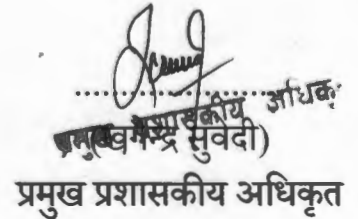 ....................
प्रमुख प्रशासकीय अधिकृ
(खगेन्द्र सुवेदी)
प्रमुख प्रशासकीय अधिकृत